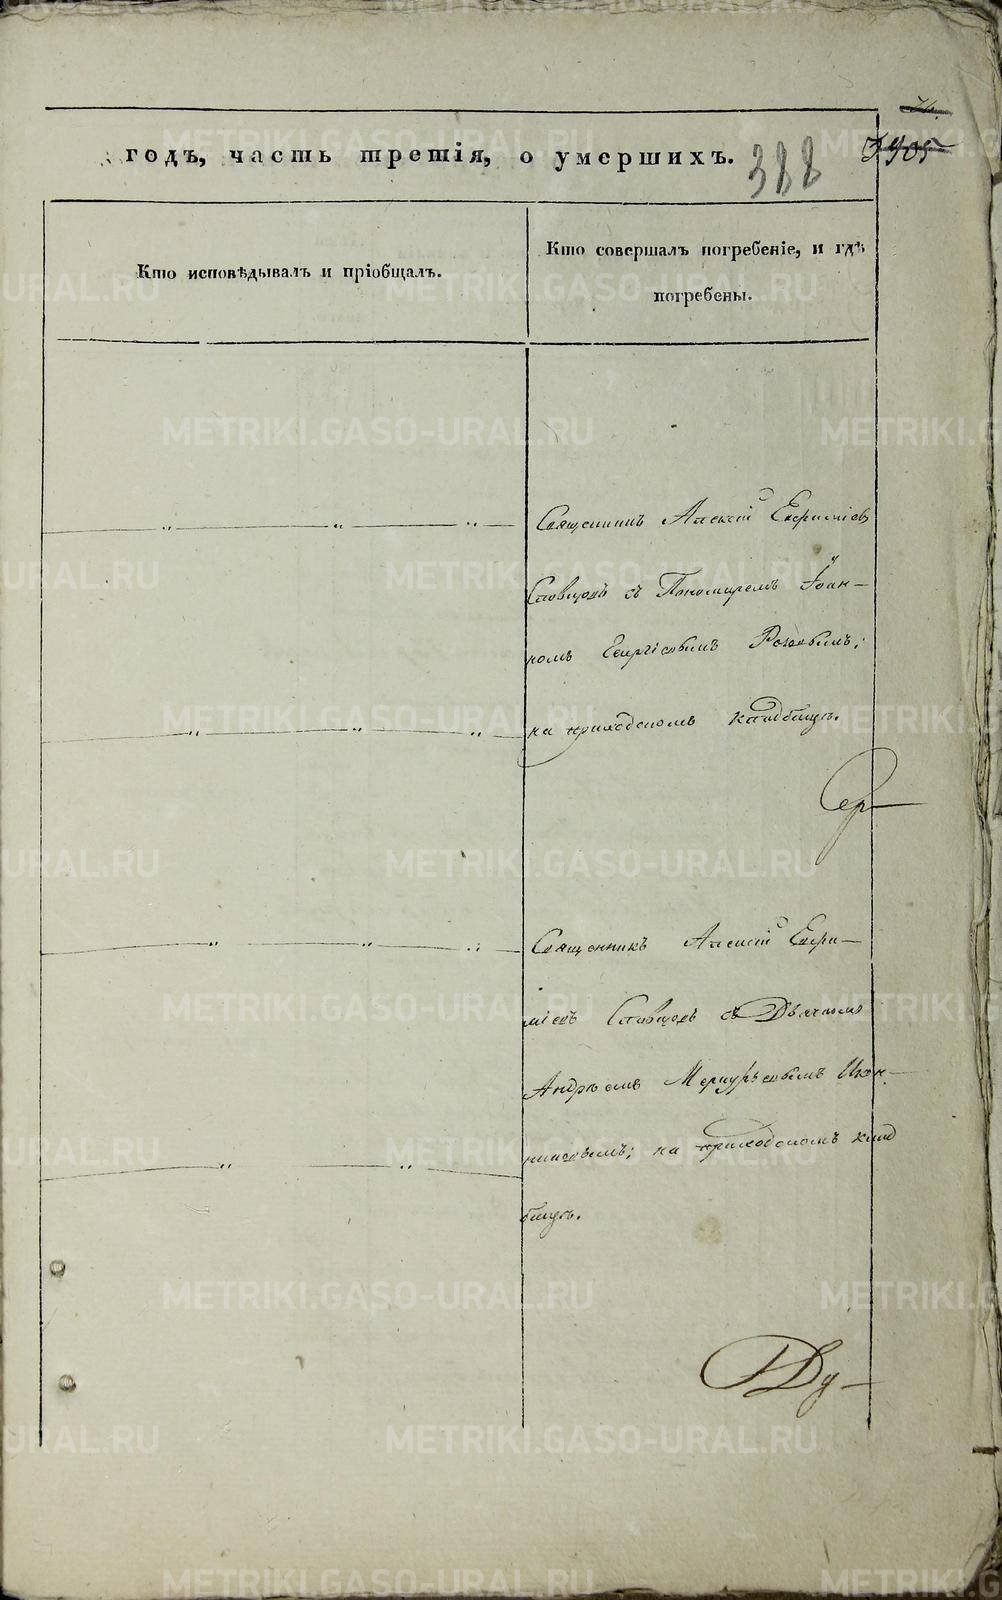 годъ, часть третія, о умершихъ.
388
3905
Кто исповѣдывалъ и пріобщалъ.
Кто совершалъ погребеніе, и гдѣ
погребены.
Священникъ Алексій Евфиміевъ
Словцовъ съ Пономаремъ Іоан-
номъ Георгіевымъ
на приходскомъ кладбищѣ.
Священникъ Алексій Евфи-
міевъ Словцовъ съ Дьячкомъ
Андреемъ Меркурьевымъ Икон-
никовымъ; на приходскомъ клад
бищѣ.
METRIKI.GASO-URAL.RU